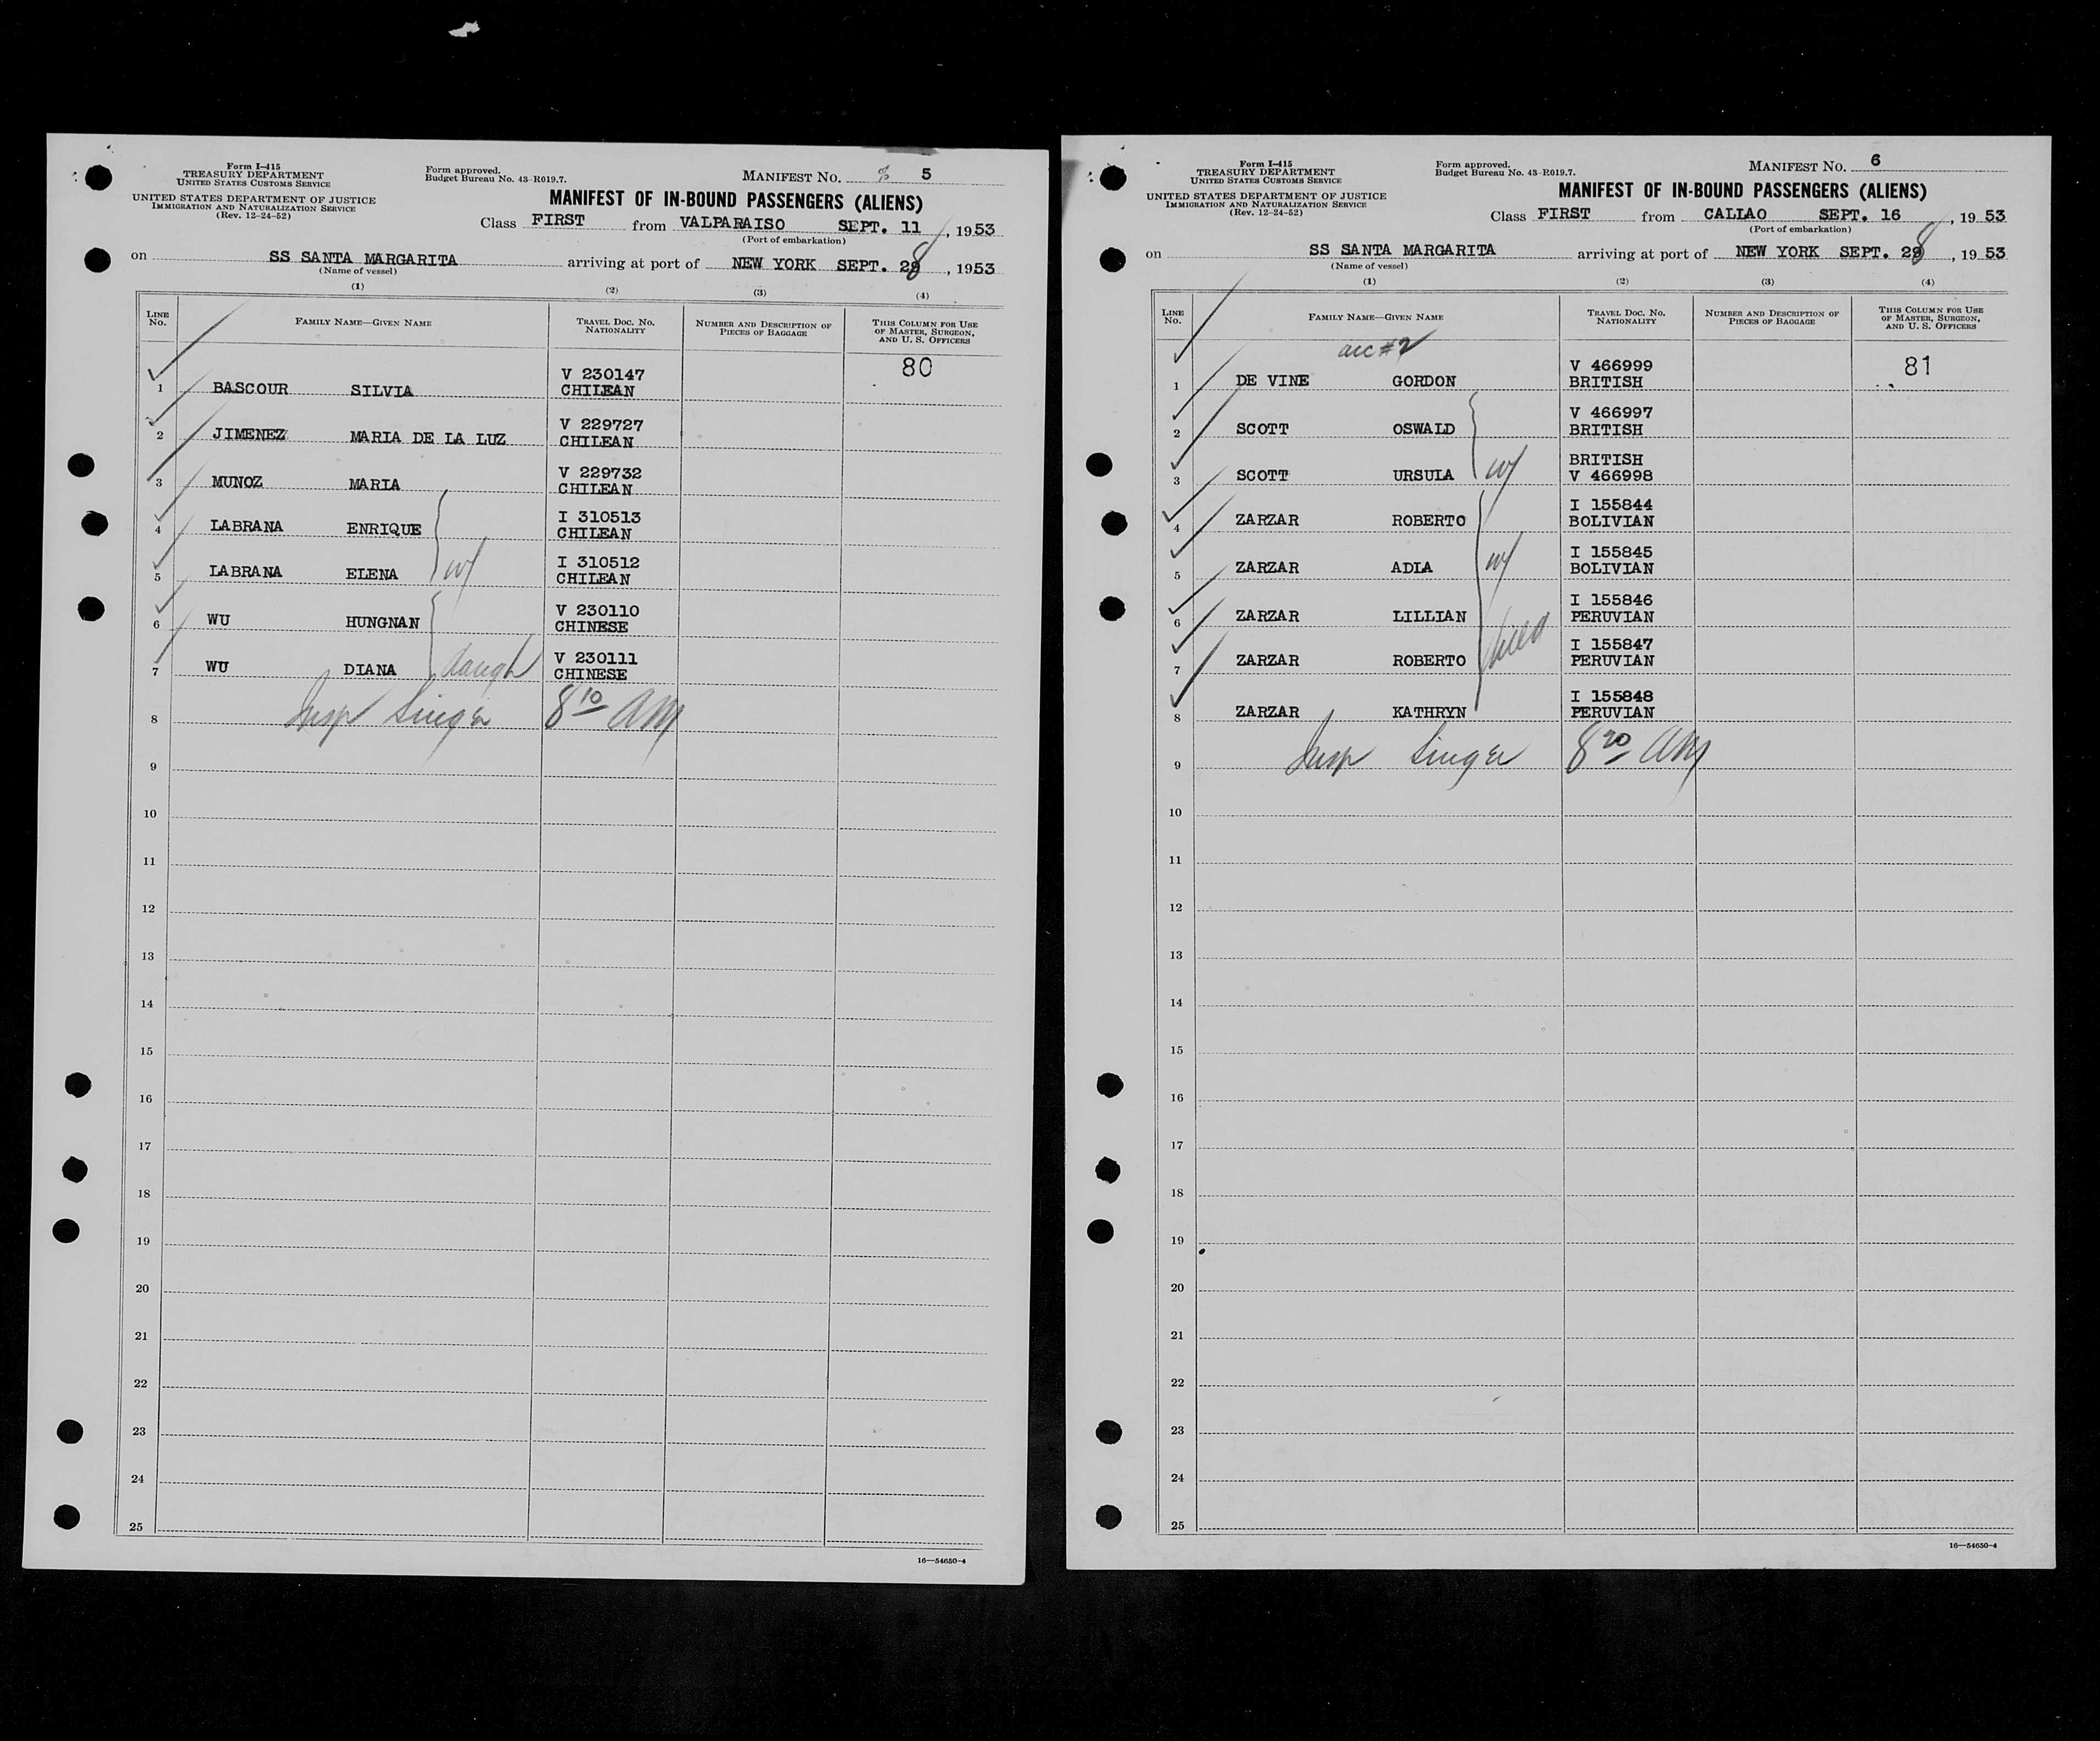 Form I-415
TREASURY DEPARTMENT
UNITED STATES CUSTOMS SERVICE
UNITED STATES DEPARTMENT OF JUSTICE
IMMIGRATION AND NATURALIZATION SERVICE
(Rev. 12-24-52)
Form approved.
Budget Bureau No. 43-R019.7.
MANIFEST No. 5
MANIFEST OF IN-BOUND PASSENGERS (ALIENS)
Class FIRST from VALPARAISO SEPT. 11, 1953
(Port of embarkation)
on SS SANTA MARGARITA arriving at port of NEW YORK SEPT. 28, 1953
(Name of vessel)
(1) (2) (3) (4)
LINE No. FAMILY NAME—GIVEN NAME TRAVEL DOC. NO. NATIONALITY NUMBER AND DESCRIPTION OF PIECES OF BAGGAGE THIS COLUMN FOR USE OF MASTER, SURGEON, AND U. S. OFFICERS
80
V 230147
1 BASCOUR SILVIA CHILEAN
V 229727
2 JIMENEZ MARIA DE LA LUZ CHILEAN
V 229732
3 MUNOZ MARIA CHILEAN
I 310513
4 LABRANA ENRIQUE CHILEAN
I 310512
5 LABRANA ELENA w/ CHILEAN
V 230110
6 WU HUNGNAN CHINESE
V 230111
7 WU DIANA daugh CHINESE
8 Insp Singer 8 10 AM
9
10
11
12
13
14
15
16
17
18
19
20
21
22
23
24
25
16—54650-4
Form I-415
TREASURY DEPARTMENT
UNITED STATES CUSTOMS SERVICE
UNITED STATES DEPARTMENT OF JUSTICE
IMMIGRATION AND NATURALIZATION SERVICE
(Rev. 12-24-52)
Form approved.
Budget Bureau No. 43-R019.7.
MANIFEST No. 6
MANIFEST OF IN-BOUND PASSENGERS (ALIENS)
Class FIRST from CALLAO SEPT. 16, 1953
(Port of embarkation)
on SS SANTA MARGARITA arriving at port of NEW YORK SEPT. 28, 1953
(Name of vessel)
(1) (2) (3) (4)
LINE No. FAMILY NAME—GIVEN NAME TRAVEL DOC. NO. NATIONALITY NUMBER AND DESCRIPTION OF PIECES OF BAGGAGE THIS COLUMN FOR USE OF MASTER, SURGEON, AND U. S. OFFICERS
#2
V 466999 81
1 DE VINE GORDON BRITISH
V 466997
2 SCOTT OSWALD BRITISH
BRITISH
3 SCOTT URSULA w/ V 466998
I 155844
4 ZARZAR ROBERTO BOLIVIAN
I 155845
5 ZARZAR ADLA w/ BOLIVIAN
I 155846
6 ZARZAR LILLIAN PERUVIAN
I 155847
7 ZARZAR ROBERTO PERUVIAN
I 155848
8 ZARZAR KATHRYN PERUVIAN
9 Insp Singer 8 20 AM
10
11
12
13
14
15
16
17
18
19
20
21
22
23
24
25
16—54650-4